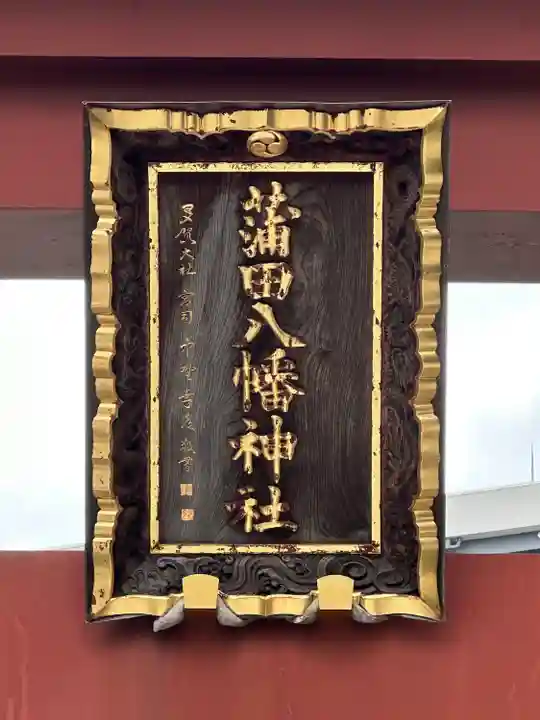 蒲田八幡神社
多賀大社 宮司